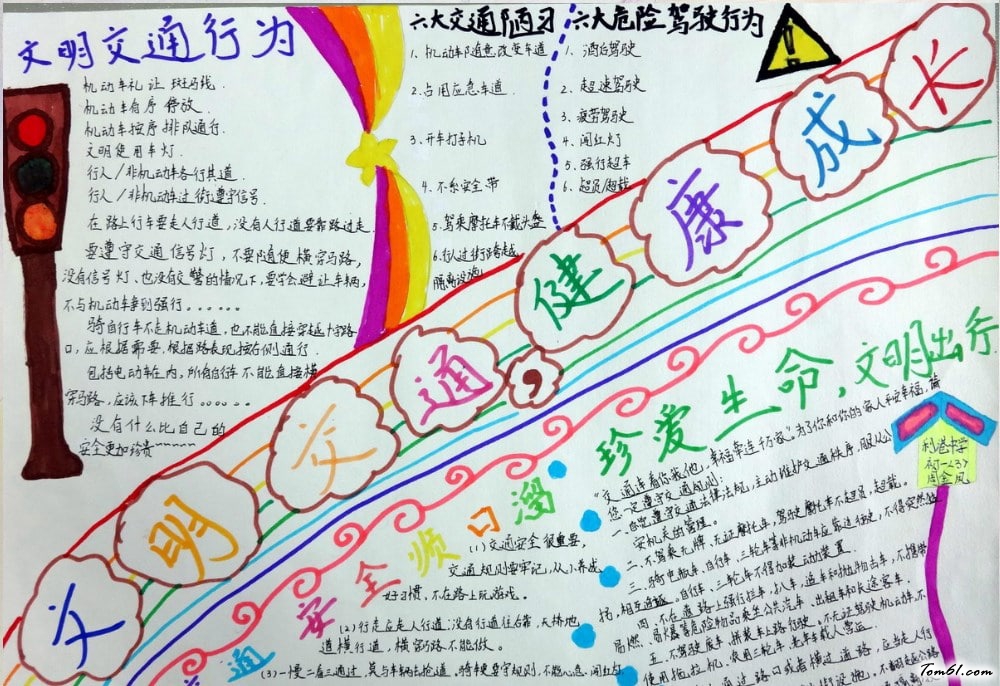 文明交通行为
机动车礼让斑马线.
机动车有序停放.
机动车按序排队通行.
文明使用车灯.
行人/非机动车各行其道.
行人/非机动车过街遵守信号.
在路上行车要走人行道,没有人行道要靠路边走.
要遵守交通信号灯,不要随便横穿马路,
没有信号灯、也没有交警的情况下,要学会避让车辆,
不与机动车争到强行......
骑自行车不走机动车道,也不能直接穿越十字路
口,应根据需要,根据路表现按右侧通行.
包括电动车在内,所有自行车不能直接横
穿马路,应该下车推行......
没有什么比自己的
安全更加珍贵~~~~~
六大交通陋习
1. 机动车随意改变车道
2. 占用应急车道.
3. 开车打手机
4. 不系安全带
5. 驾乘摩托车不戴头盔
6. 行人过街跨越
隔离设施
六大危险驾驶行为
1. 酒后驾驶
2. 超速驾驶
3. 疲劳驾驶
4. 闯红灯
5. 强行超车
6. 超员/超载
文明交通,健康成长
珍爱生命,文明出行.
利港中学
初一(3)
周金凤
交通安全顺口溜
(1)交通安全很重要,
交通规则要牢记,从小养成
好习惯,不在路上玩游戏.
(2)行走应走人行道;没有行道往右靠,天桥地
道横行道,横穿马路不能做.
(3)一慢二看三通过,莫与车辆去抢道,骑车更要守规则,不能心急
"交通连着你我他,幸福牵连千万家."为了你和你的家人平安幸福,
您一定遵守交通规则:
一.自觉遵守交通法律法规,主动维护交通秩序,服从公
安机关的管理。
二.不驾乘无牌、无证摩托车,驾驶摩托车不超员、超载。
三.骑电瓶车、自行车、三轮车等非机动车应靠边行驶,不得突然
相互追逐.自行车、三轮车不得加装动力装置.
四.不在道路上强行拦车,扒车,追车和抛物击车,不携带
易燃、易爆等危险物品乘坐公共汽车、出租车和长途客车.
五.不驾驶废车、拼装车上路行驶,不无证驾驶机动车,不
使用拖拉机、农用三轮车、老年车载人营运.
Tom61.com